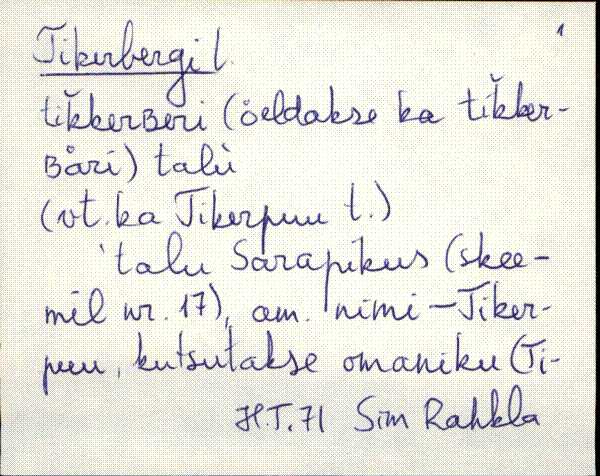 1
Tikerbergi t.
tĭkkerʙeri (öeldakse ka tĭkker-
ʙåri) talù
(vt. ka Tikerpuu t.)
'talu Sarapikus (skee-
mil nr. 17), am. nimi – Tiker-
puu, kutsutakse omaniku (Ti-
H.T. 71 Sim Rahkla